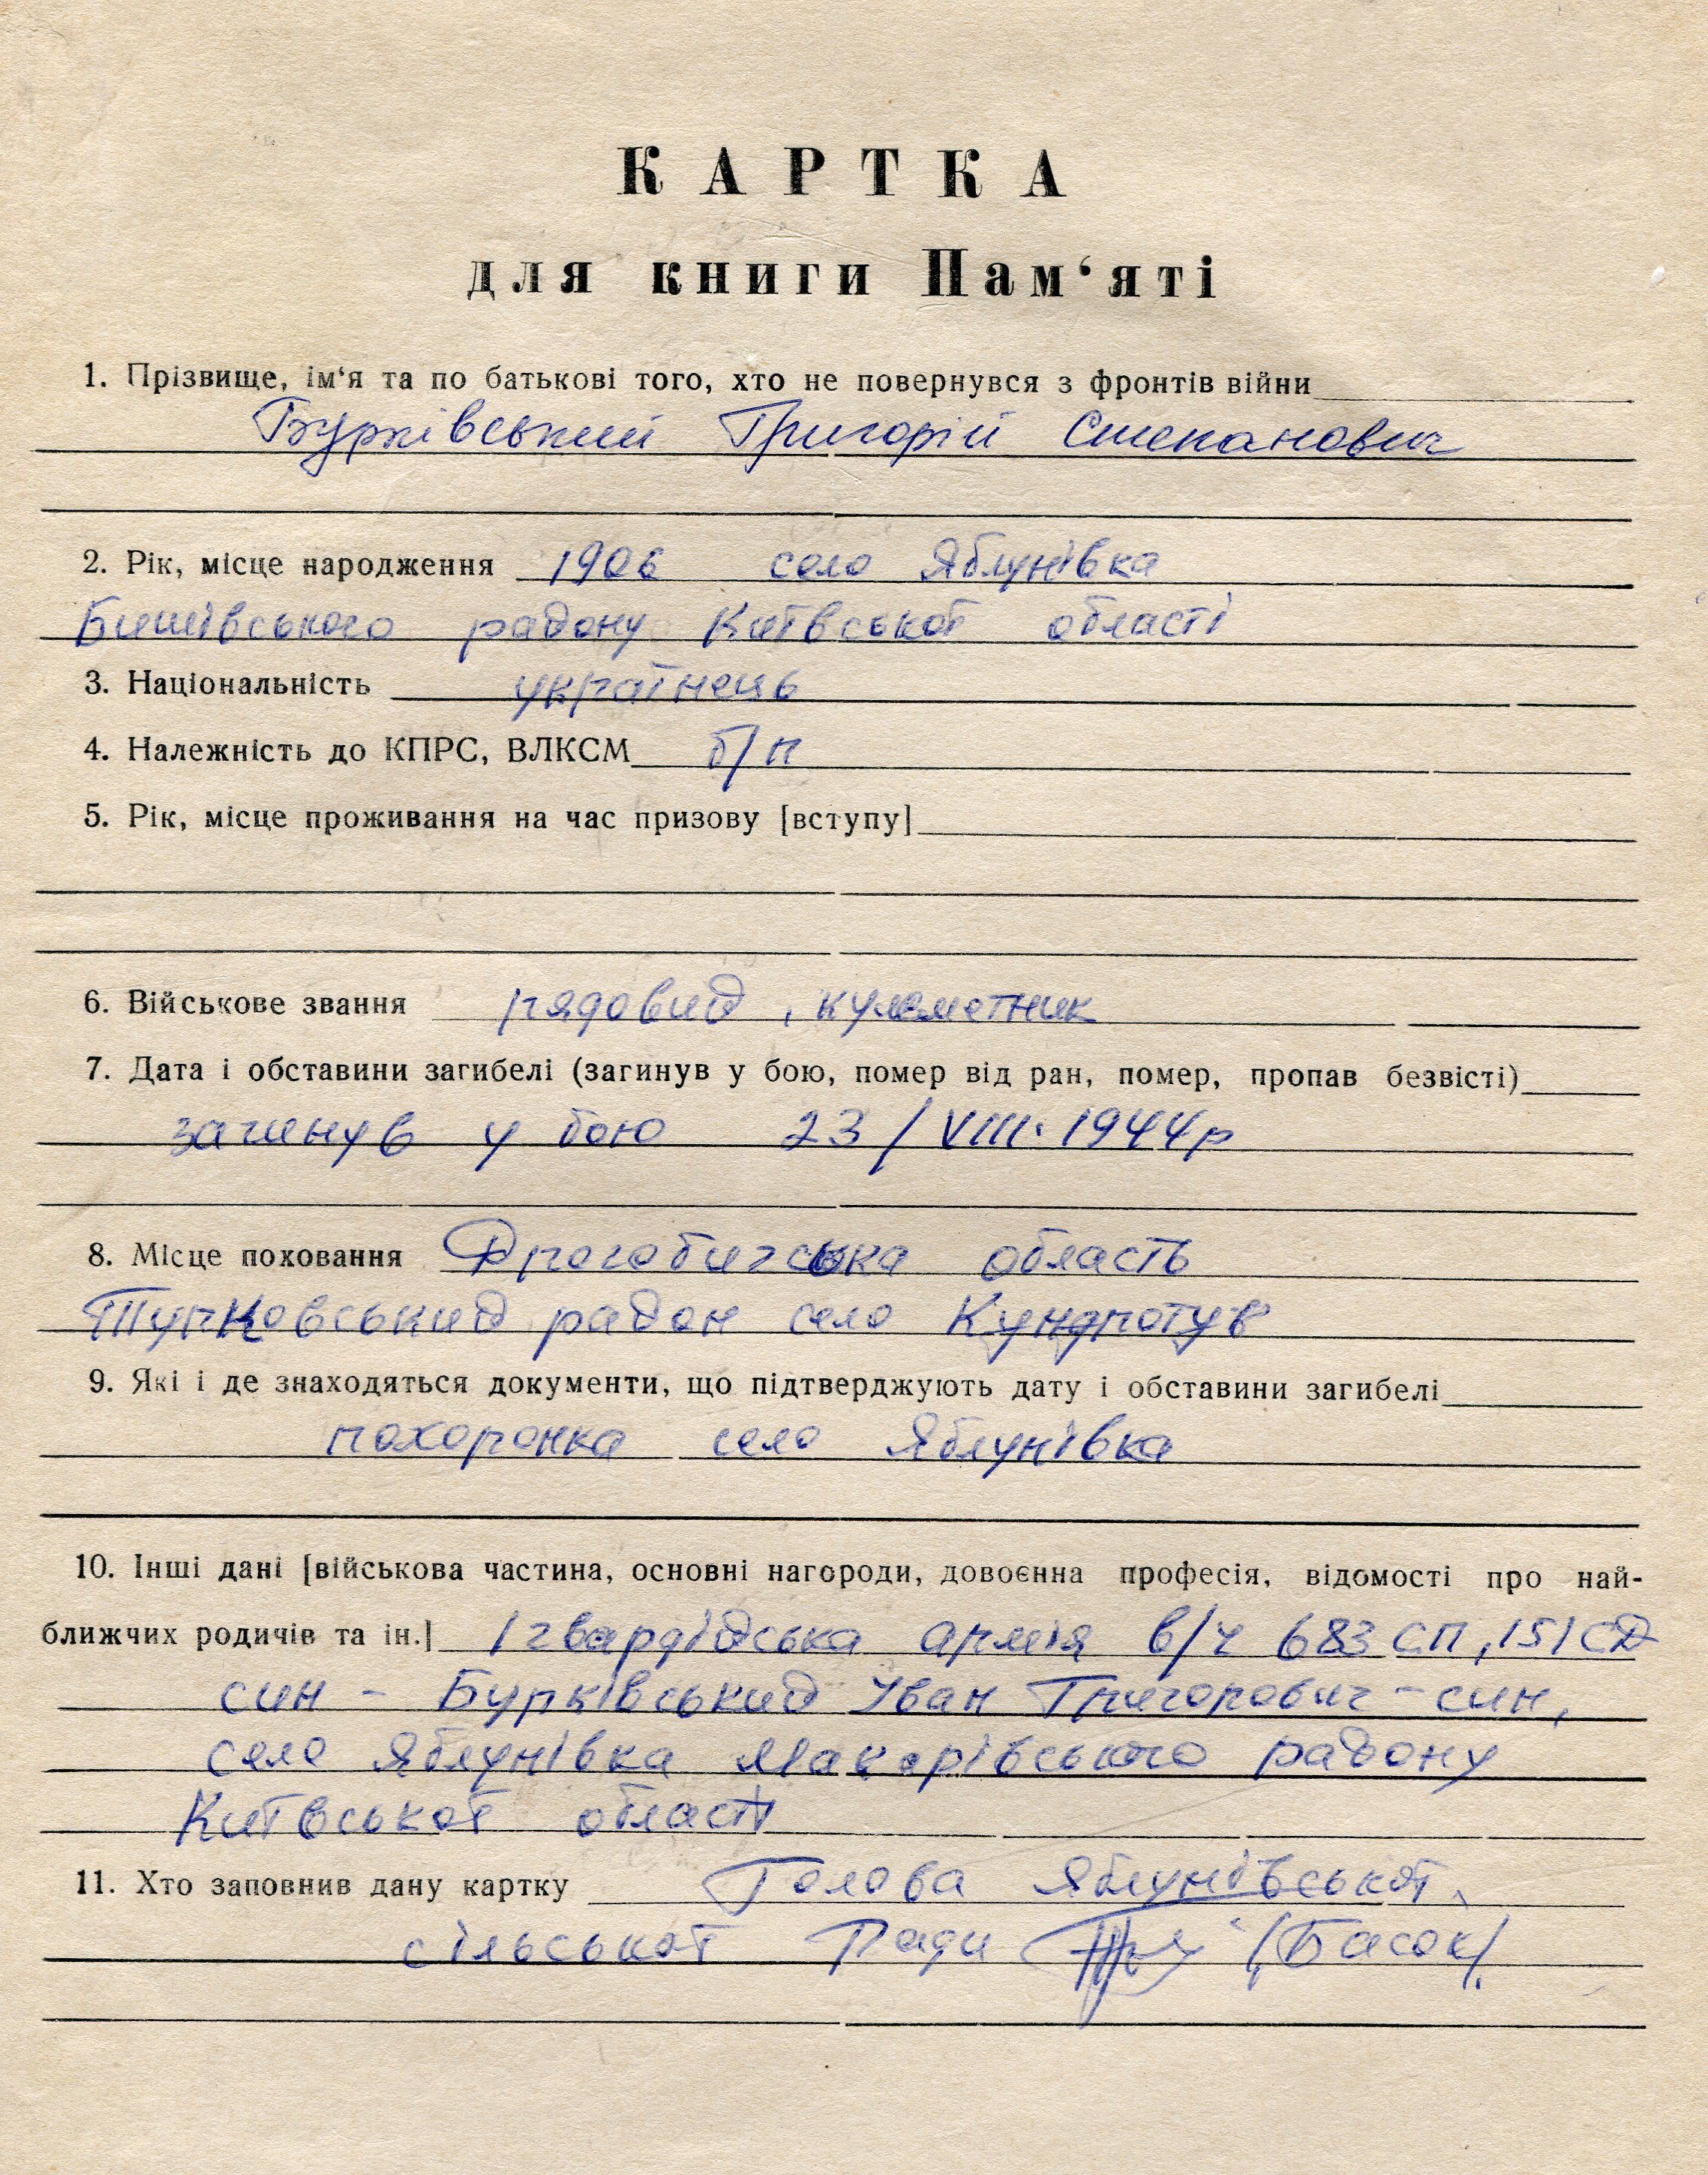 КАРТКА
для книги Пам‘яті
1. Прізвище, ім‘я та по батькові того, хто не повернувся з фронтів війни
Бурківський Григорій Степанович
2. Рік, місце народження 1906 село Яблунівка
Бишівського району Київської області
3. Національність українець
4. Належність до КПРС, ВЛКСМ б/п
5. Рік, місце проживання на час призову [вступу]
6. Військове звання рядовий, кулеметник
7. Дата і обставини загибелі (загинув у бою, помер від ран, помер, пропав безвісті)
загинув у бою 23/VIII.1944р
8. Місце поховання Дрогобичська область
Турковський район село Кундротув
9. Які і де знаходяться документи, що підтверджують дату і обставини загибелі
похоронка село Яблунівка
10. Інші дані [військова частина, основні нагороди, довоєнна професія, відомості про най-
ближчих родичів та ін.] 1 гвардійська армія в/ч 683 СП, 151 СД
син - Бурківський Іван Григорович - син,
село Яблунівка Макарівського району
Київської області
11. Хто заповнив дану картку Голова Яблунівської
сільської Ради (Басок)